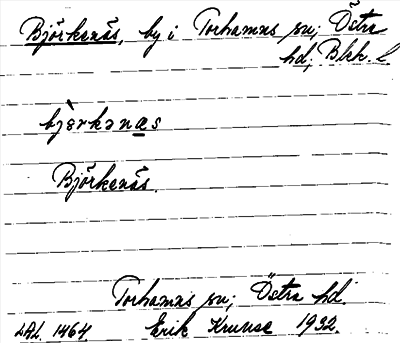 Björkenäs, by i Torhamns sn; Östra
hd; Blek. l
bjèrkənas
Björkenäs.
Torhamns sn; Östra hd
LAL. 1464. Erik Kruuse 1932.